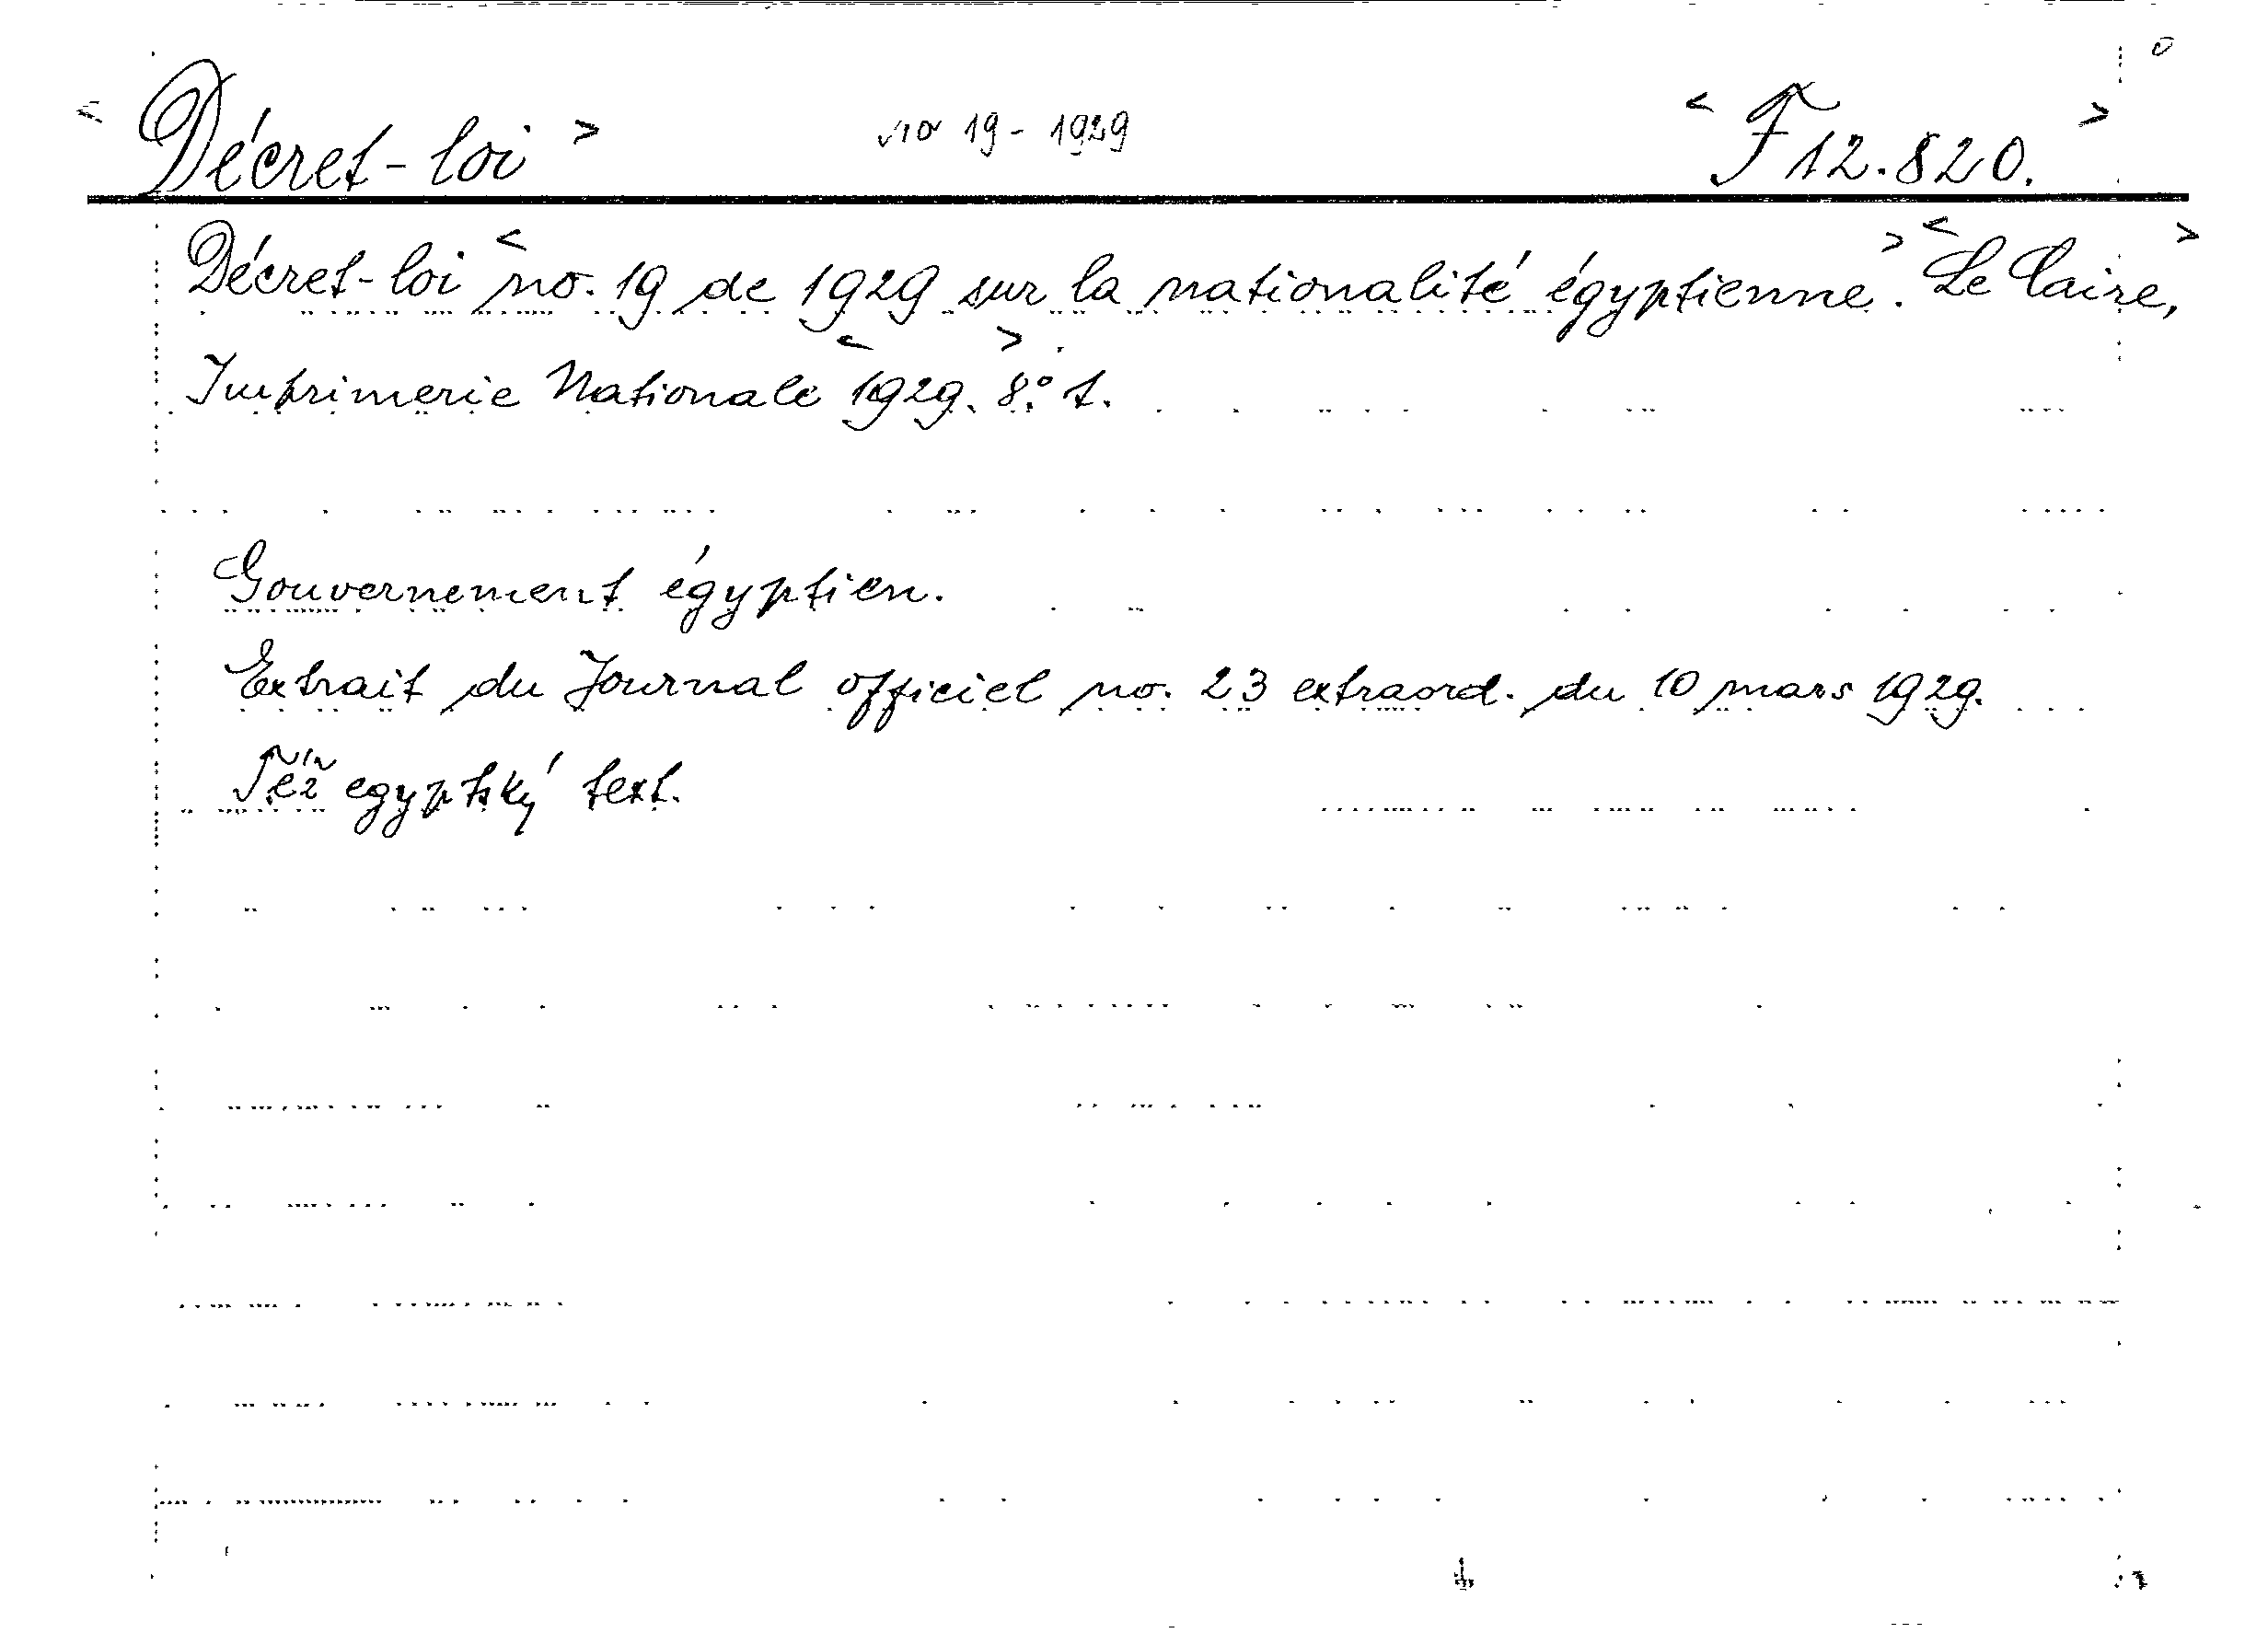 < Décret-loi > no 19 - 1929 < F 12.820. >
Décret-loi < no. 19 de 1929 sur la nationalité égyptienne >. < Le Caire, >
Imprimerie Nationale < 1929. > 8.° t.
Gouvernement égyptien.
Extrait du Journal officiel no. 23 extraord. du 10 mars 1929.
Též egyptský text.